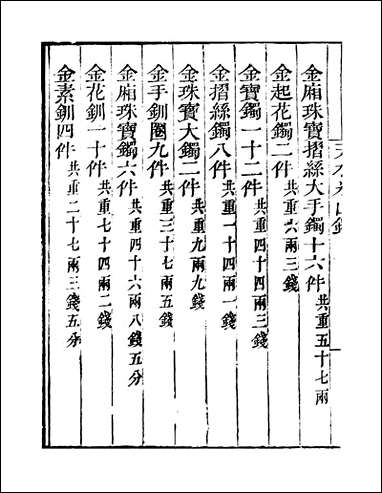 金廂珠寶摺絲大手鐲十六件共重五十七兩
金起花鐲二件共重六兩三錢
金寶鐲一十二件共重四十四兩三錢
金摺絲鐲八件共重一十四兩一錢
金珠寶大鐲二件共重九兩九錢
金手釧圈九件共重三十七兩五錢
金廂珠寶鐲六件共重四十六兩八錢五分
金花釧一十件共重七十四兩二錢
金素釧四件共重二十七兩三錢五分